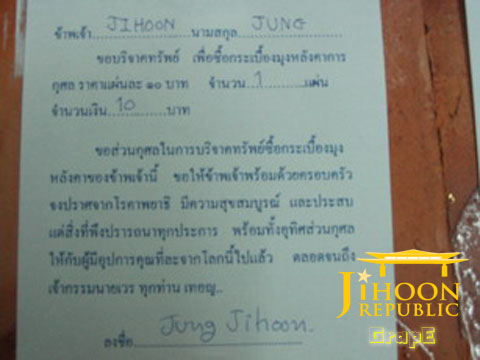 ข้าพเจ้า JIHOON นามสกุล JUNG
ขอบริจาคทรัพย์ เพื่อซื้อกระเบื้องมุงหลังคาการ
กุศล ราคาแผ่นละ ๑๐ บาท จำนวน 1 แผ่น
จำนวนเงิน 10 บาท
ขอส่วนกุศลในการบริจาคทรัพย์ซื้อกระเบื้องมุง
หลังคาของข้าพเจ้านี้ ขอให้ข้าพเจ้าพร้อมด้วยครอบครัว
จงปราศจากโรคาพยาธิ มีความสุขสมบูรณ์ และประสบ
แต่สิ่งที่พึงปรารถนาทุกประการ พร้อมทั้งอุทิศส่วนกุศล
ให้กับผู้มีอุปการคุณที่ละจากโลกนี้ไปแล้ว ตลอดจนถึง
เจ้ากรรมนายเวร ทุกท่าน เทอญ..
ลงชื่อ Jung Jihoon.
JIHOON
REPUBLIC
GrapE